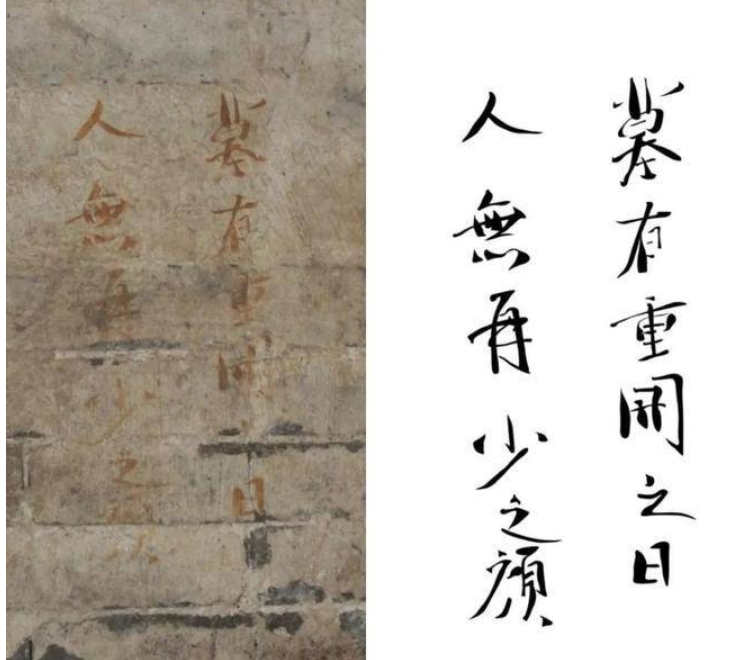 墓有重開之日
人無再少之顏
墓有重開之日
人無再少之顏